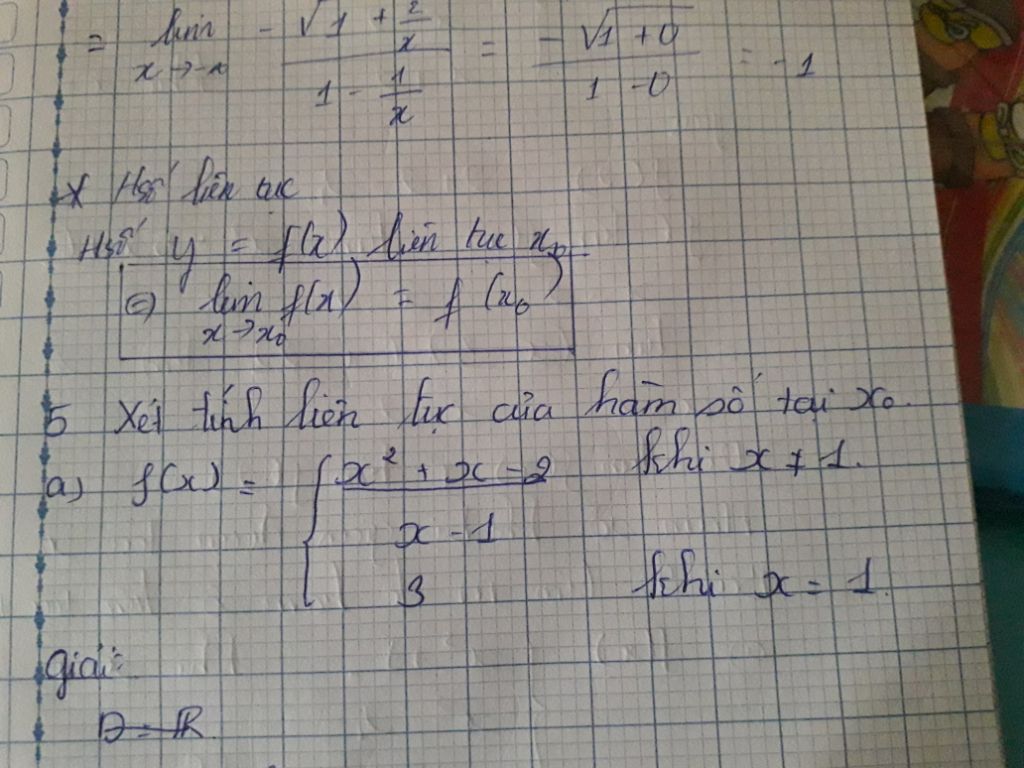 = lim x→-∞ -√1 + 2/x / 1 - 1/x = -√1 + 0 / 1 - 0 = -1
* Hsố liên tục
Hsố y = f(x) liên tục x₀
⇔ lim x→x₀ f(x) = f(x₀)
5 Xét tính liên tục của hàm số tại x₀.
a) f(x) = { x² + x - 2 khi x ≠ 1.
x - 1
3 khi x = 1.
Giải:
D = R.